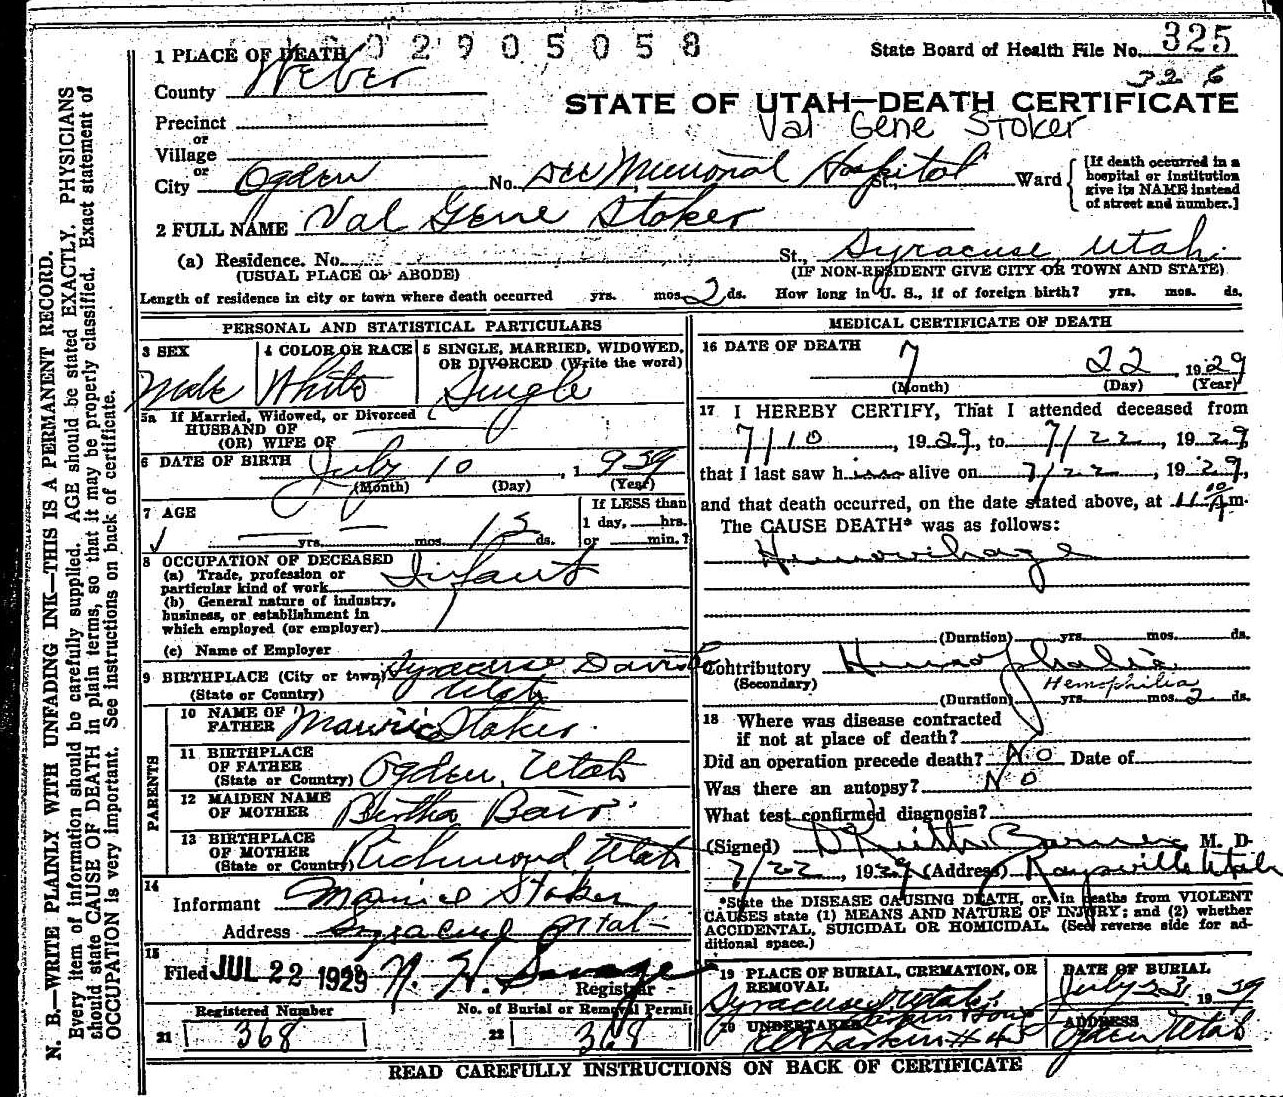 2905058
1 PLACE OF DEATH
State Board of Health File No. 325
326
County Weber
STATE OF UTAH—DEATH CERTIFICATE
Val Gene Stoker
Precinct
or
Village
or
City Ogden No. Dee Memorial Hospital St., Ward
[If death occurred in a
hospital or institution
give its NAME instead
of street and number.]
2 FULL NAME Val Gene Stoker
(a) Residence. No. St., Syracuse, Utah.
(USUAL PLACE OF ABODE) (IF NON-RESIDENT GIVE CITY OR TOWN AND STATE)
Length of residence in city or town where death occurred yrs. mos. 2 ds. How long in U. S., if of foreign birth? yrs. mos. ds.
PERSONAL AND STATISTICAL PARTICULARS
3 SEX
Male
4 COLOR OR RACE
White
5 SINGLE, MARRIED, WIDOWED,
OR DIVORCED (Write the word)
Single
5a If Married, Widowed, or Divorced
HUSBAND OF
(OR) WIFE OF
6 DATE OF BIRTH July 10, 1939
(Month) (Day) (Year)
7 AGE
yrs. mos. ds.
If LESS than
1 day, hrs.
or min.?
8 OCCUPATION OF DECEASED
(a) Trade, profession or
particular kind of work Infant
(b) General nature of industry,
business, or establishment in
which employed (or employer)
(c) Name of Employer
9 BIRTHPLACE (City or town) Syracuse Davis
(State or Country) Utah
PARENTS
10 NAME OF
FATHER Stoker
11 BIRTHPLACE
OF FATHER
(State or Country) Ogden, Utah
12 MAIDEN NAME
OF MOTHER Bertha Bair
13 BIRTHPLACE
OF MOTHER
(State or Country) Richmond Utah
14
Informant Stoker
Address Syracuse Utah
15
Filed JUL 22 1929 N. H. Savage
Registrar
Registered Number
21 368
No. of Burial or Removal Permit
22 368
MEDICAL CERTIFICATE OF DEATH
16 DATE OF DEATH 7 22, 1929
(Month) (Day) (Year)
17 I HEREBY CERTIFY, That I attended deceased from
7/10, 1929, to 7/22, 1929
that I last saw him alive on 7/22, 1929,
and that death occurred, on the date stated above, at 11 10 A m.
The CAUSE DEATH* was as follows:
Hemorrhage
(Duration) yrs. mos. ds.
Contributory Hemophalia
(Secondary) Hemophilia
(Duration) yrs. mos. 2 ds.
18 Where was disease contracted
if not at place of death?
Did an operation precede death? No Date of
Was there an autopsy? No
What test confirmed diagnosis?
(Signed) D Keith Barnes M. D.
7/22, 1929 (Address) Kaysville Utah
*State the DISEASE CAUSING DEATH, or, in deaths from VIOLENT
CAUSES state (1) MEANS AND NATURE OF INJURY; and (2) whether
ACCIDENTAL, SUICIDAL OR HOMICIDAL. (See reverse side for ad-
ditional space.)
19 PLACE OF BURIAL, CREMATION, OR
REMOVAL
Syracuse, Utah
DATE OF BURIAL
July 23, 1939
20 UNDERTAKER
Larkin
ADDRESS
Ogden Utah
READ CAREFULLY INSTRUCTIONS ON BACK OF CERTIFICATE
N. B.—WRITE PLAINLY WITH UNFADING INK—THIS IS A PERMANENT RECORD.
Every item of information should be carefully supplied. AGE should be stated EXACTLY. PHYSICIANS
should state CAUSE OF DEATH in plain terms, so that it may be properly classified. Exact statement of
OCCUPATION is very important. See instructions on back of certificate.